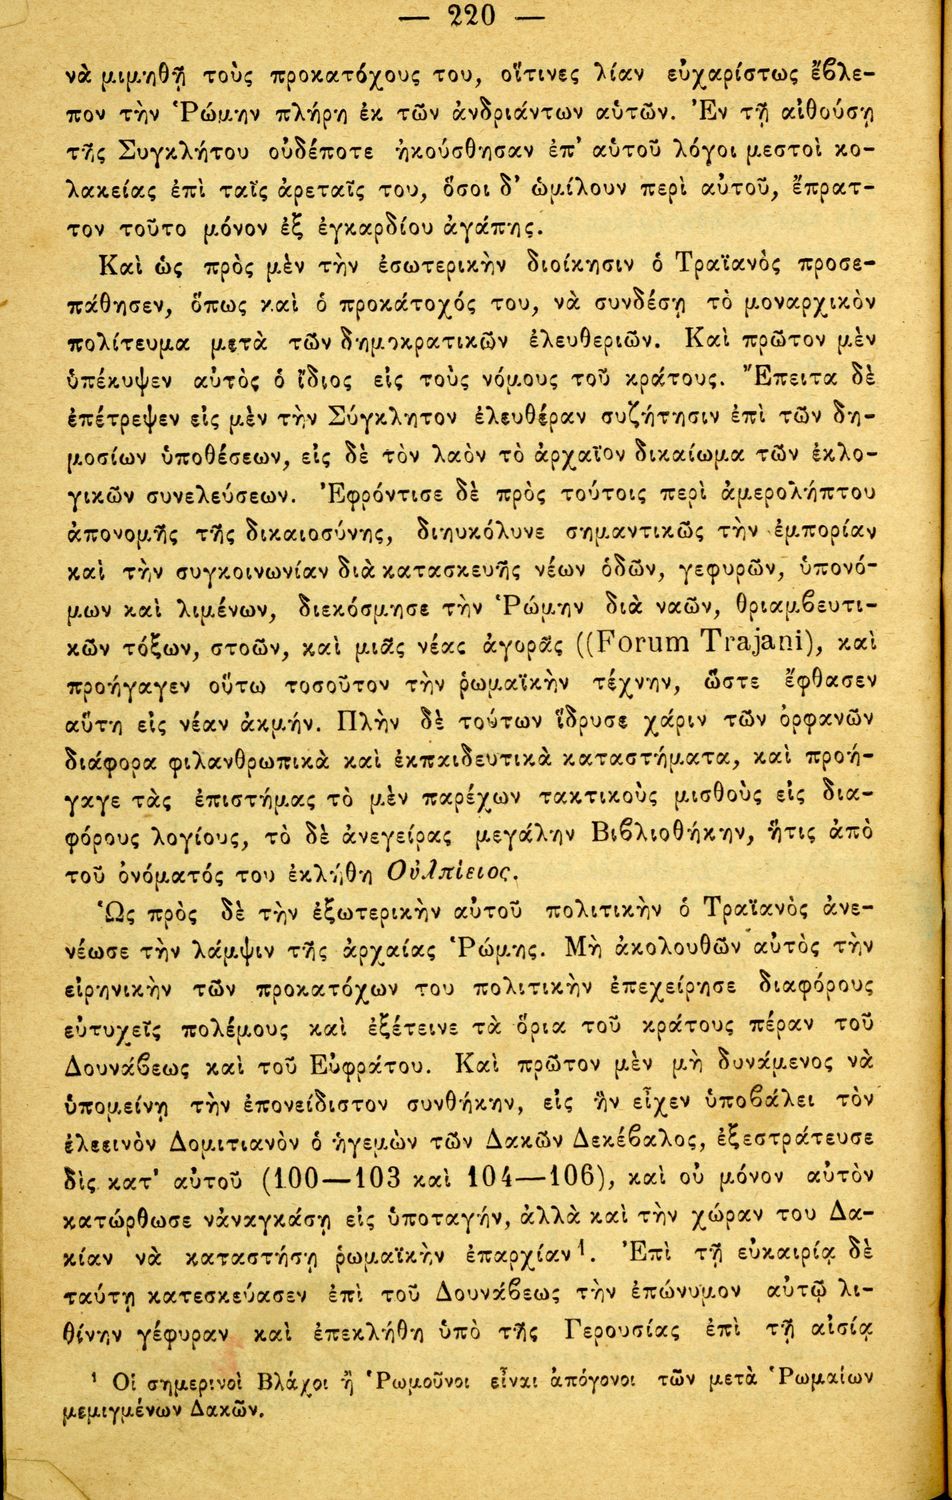 — 220 —
νὰ μιμηθῇ τοὺς προκατόχους του, οἵτινες λίαν εὐχαρίστως ἔβλε-
πον τὴν Ῥώμην πλήρη ἐκ τῶν ἀνδριάντων αὑτῶν. Ἐν τῇ αἰθούσῃ
τῆς Συγκλήτου οὐδέποτε ἠκούσθησαν ἐπ’ αὐτοῦ λόγοι μεστοὶ κο-
λακείας ἐπὶ ταῖς ἀρεταῖς του, ὅσοι δ’ ὡμίλουν περὶ αὐτοῦ, ἔπρατ-
τον τοῦτο μόνον ἐξ ἐγκαρδίου ἀγάπης.
Καὶ ὡς πρὸς μὲν τὴν ἐσωτερικὴν διοίκησιν ὁ Τραϊανὸς προσε-
πάθησεν, ὅπως καὶ ὁ προκάτοχός του, νὰ συνδέσῃ τὸ μοναρχικὸν
πολίτευμα μετὰ τῶν δημοκρατικῶν ἐλευθεριῶν. Καὶ πρῶτον μὲν
ὑπέκυψεν αὐτὸς ὁ ἴδιος εἰς τοὺς νόμους τοῦ κράτους. Ἔπειτα δὲ
ἐπέτρεψεν εἰς μὲν τὴν Σύγκλητον ἐλευθέραν συζήτησιν ἐπὶ τῶν δη-
μοσίων ὑποθέσεων, εἰς δὲ τὸν λαὸν τὸ ἀρχαῖον δικαίωμα τῶν ἐκλο-
γικῶν συνελεύσεων. Ἐφρόντισε δὲ πρὸς τούτοις περὶ ἀμερολήπτου
ἀπονομῆς τῆς δικαιοσύνης, διηυκόλυνε σημαντικῶς τὴν ἐμπορίαν
καὶ τὴν συγκοινωνίαν διὰ κατασκευῆς νέων ὁδῶν, γεφυρῶν, ὑπονό-
μων καὶ λιμένων, διεκόσμησε τὴν Ῥώμην διὰ ναῶν, θριαμβευτι-
κῶν τόξων, στοῶν, καὶ μιᾶς νέας ἀγορᾶς ((Forum Trajani), καὶ
προήγαγεν οὕτω τοσοῦτον τὴν ῥωμαϊκὴν τέχνην, ὥστε ἔφθασεν
αὕτη εἰς νέαν ἀκμήν. Πλὴν δὲ τούτων ἵδρυσε χάριν τῶν ὀρφανῶν
διάφορα φιλανθρωπικὰ καὶ ἐκπαιδευτικὰ καταστήματα, καὶ προή-
γαγε τὰς ἐπιστήμας τὸ μὲν παρέχων τακτικοὺς μισθοὺς εἰς δια-
φόρους λογίους, τὸ δὲ ἀνεγείρας μεγάλην Βιβλιοθήκην, ἥτις ἀπὸ
τοῦ ὀνόματός του ἐκλήθη Οὐλπίειος.
Ὡς πρὸς δὲ τὴν ἐξωτερικὴν αὐτοῦ πολιτικὴν ὁ Τραϊανὸς ἀνε-
νέωσε τὴν λάμψιν τῆς ἀρχαίας Ῥώμης. Μὴ ἀκολουθῶν αὐτὸς τὴν
εἰρηνικὴν τῶν προκατόχων του πολιτικὴν ἐπεχείρησε διαφόρους
εὐτυχεῖς πολέμους καὶ ἐξέτεινε τὰ ὅρια τοῦ κράτους πέραν τοῦ
Δουνάβεως καὶ τοῦ Εὐφράτου. Καὶ πρῶτον μὲν μὴ δυνάμενος νὰ
ὑπομείνῃ τὴν ἐπονείδιστον συνθήκην, εἰς ἣν εἶχεν ὑποβάλει τὸν
ἐλεεινὸν Δομιτιανὸν ὁ ἡγεμὼν τῶν Δακῶν Δεκέβαλος, ἐξεστράτευσε
δὶς κατ’ αὐτοῦ (100—103 καὶ 104—106), καὶ οὐ μόνον αὐτὸν
κατώρθωσε νἀναγκάσῃ εἰς ὑποταγήν, ἀλλὰ καὶ τὴν χώραν του Δα-
κίαν νὰ καταστήσῃ ῥωμαϊκὴν ἐπαρχίαν¹. Ἐπὶ τῇ εὐκαιρίᾳ δὲ
ταύτῃ κατεσκεύασεν ἐπὶ τοῦ Δουνάβεως τὴν ἐπώνυμον αὐτῷ λι-
θίνην γέφυραν καὶ ἐπεκλήθη ὑπὸ τῆς Γερουσίας ἐπὶ τῇ αἰσίᾳ
¹ Οἱ σημερινοὶ Βλάχοι ἢ Ῥωμοῦνοι εἶναι ἀπόγονοι τῶν μετὰ Ῥωμαίων
μεμιγμένων Δακῶν.